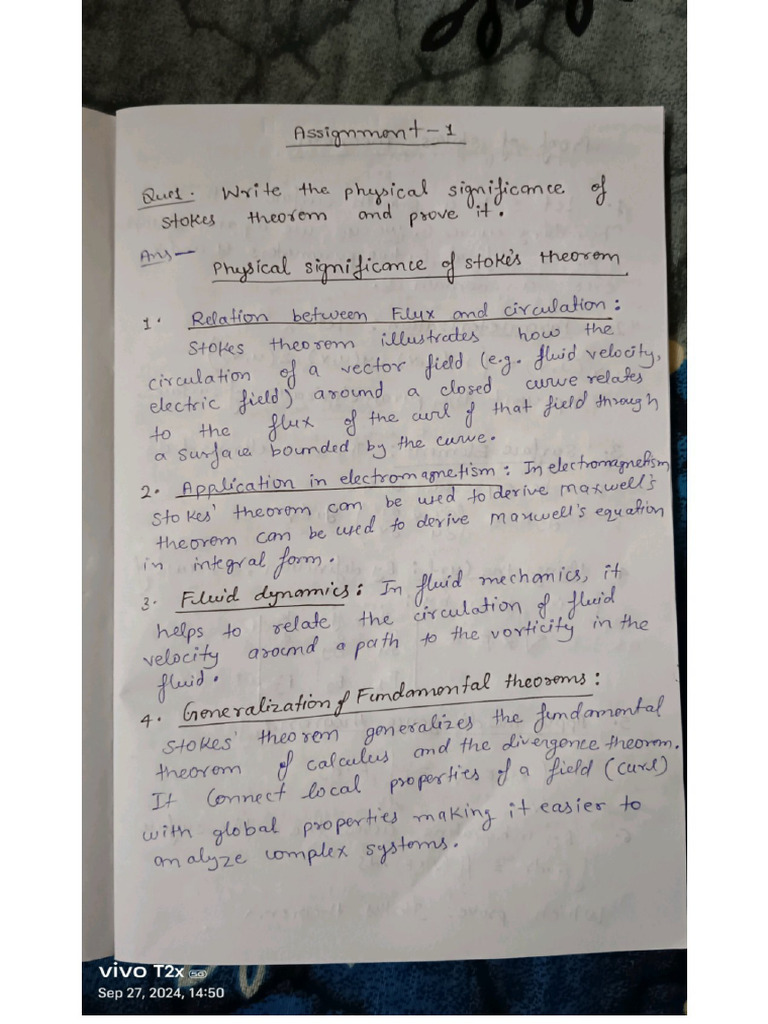 Assignment - 1
Que1. Write the physical significance of
stokes theorem and prove it.
Ans -
Physical significance of stoke's theorem
1. Relation between Flux and circulation :
Stokes theorem illustrates how the
circulation of a vector field (e.g. fluid velocity,
electric field) around a closed curve relates
to the flux of the curl of that field through
a surface bounded by the curve.
2. Application in electromagnetism : In electromagnetism
Stokes' theorem can be used to derive maxwell's
theorem can be used to derive maxwell's equation
in integral form.
3. Fluid dynamics : In fluid mechanics, it
helps to relate the circulation of fluid
velocity around a path to the vorticity in the
fluid.
4. Generalization of Fundamental theorems :
Stokes' theorem generalizes the fundamental
theorem of calculus and the divergence theorem.
It connect local properties of a field (curl)
with global properties making it easier to
analyze complex systems.
vivo T2x 5G
Sep 27, 2024, 14:50